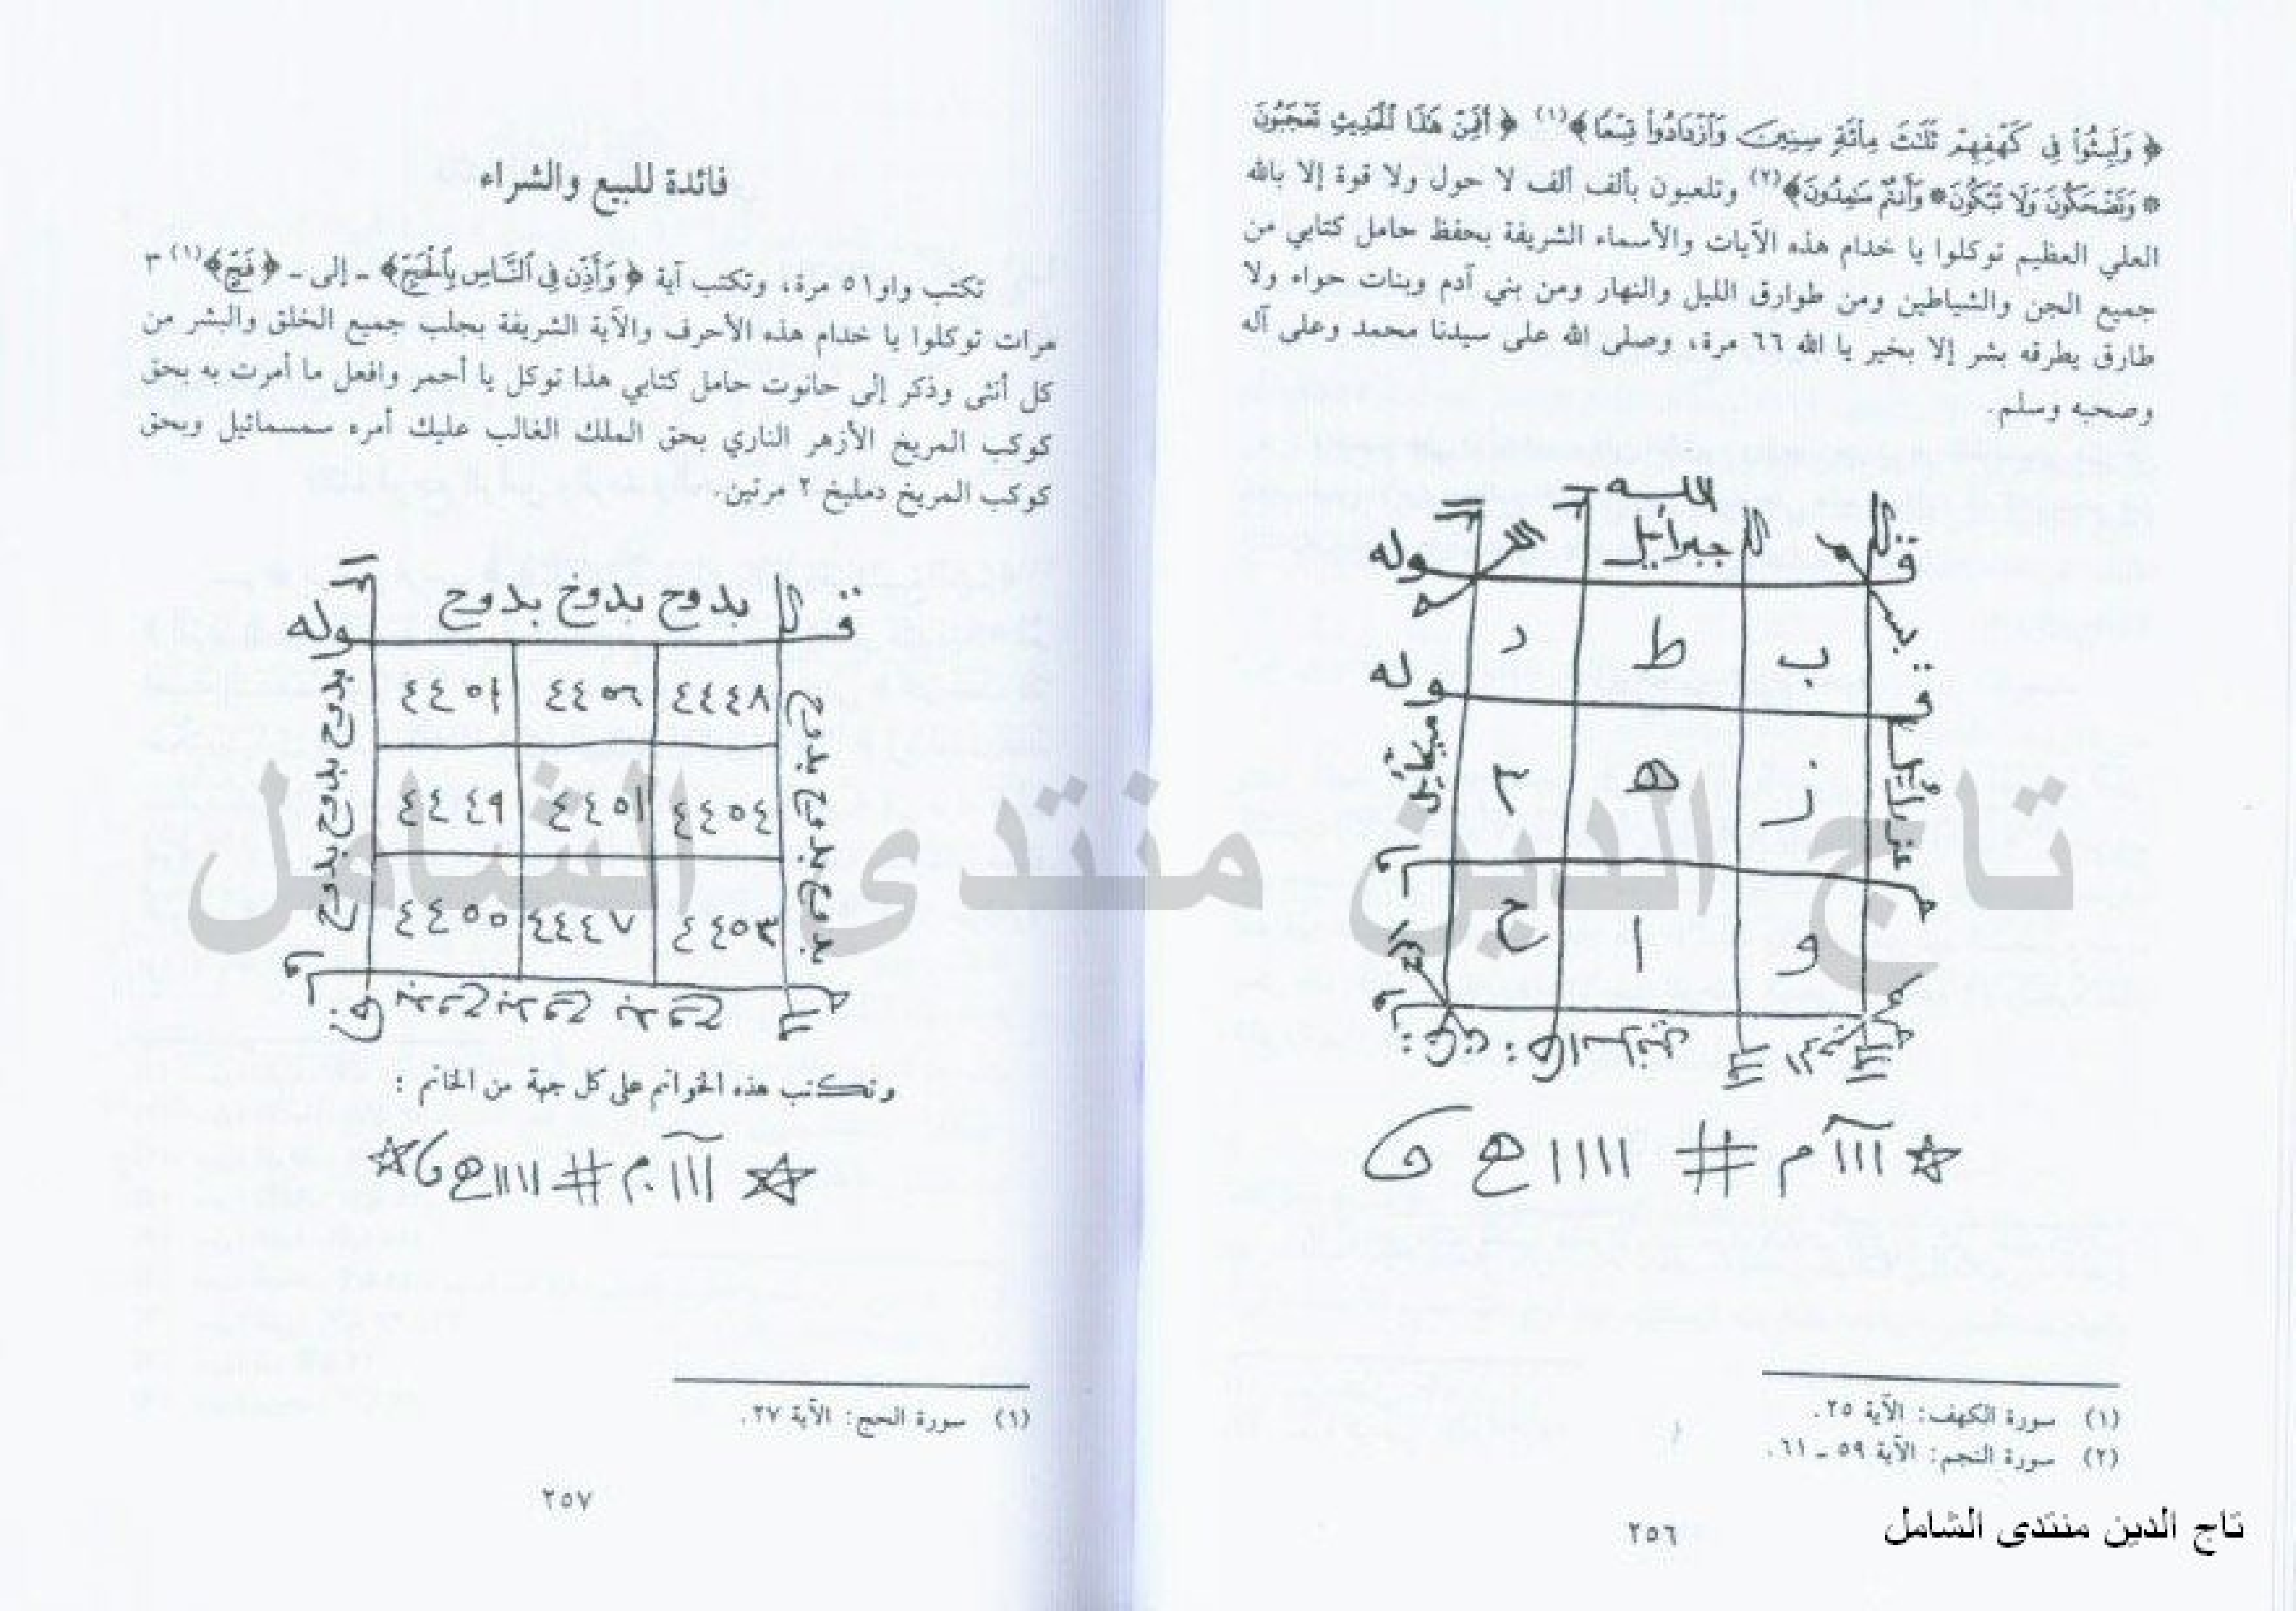 ﴿ وَلَبِثُوا۟ فِى كَهْفِهِمْ ثَلَٰثَ مِا۟ئَةٍ سِنِينَ وَٱزْدَادُوا۟ تِسْعًا﴾(١) ﴿ أَفَمِنْ هَٰذَا ٱلْحَدِيثِ تَعْجَبُونَ
* وَتَضْحَكُونَ وَلَا تَبْكُونَ* وَأَنتُمْ سَٰمِدُونَ﴾(٢) وتلعبون بألف ألف لا حول ولا قوة إلا بالله
العلي العظيم توكلوا يا خدام هذه الآيات والأسماء الشريفة بحفظ حامل كتابي من
جميع الجن والشياطين ومن طوارق الليل والنهار ومن بني آدم وبنات حواء ولا
طارق يطرقه بشر إلا بخير يا الله ٦٦ مرة، وصلى الله على سيدنا محمد وعلى آله
وصحبه وسلم.
الله
جبرايل
قوله
ب ط د
قوله
عزرائيل
ميكائيل
ز ه ج
و ا ح
(١) سورة الكهف: الآية ٢٥.
(٢) سورة النجم: الآية ٥٩ ـ ٦١.
٢٥٦
فائدة للبيع والشراء
تكتب واو٥١ مرة، وتكتب آية ﴿ وَأَذِّن فِى ٱلنَّاسِ بِٱلْحَجِّ﴾ ـ إلى ـ ﴿ فَجٍّ﴾(١) ٣
مرات توكلوا يا خدام هذه الأحرف والآية الشريفة بجلب جميع الخلق والبشر من
كل أنثى وذكر إلى حانوت حامل كتابي هذا توكل يا أحمر وافعل ما أمرت به بحق
كوكب المريخ الأزهر الناري بحق الملك الغالب عليك أمره سمسمائيل وبحق
كوكب المريخ دمليخ ٢ مرتين.
بدوح بدوح بدوح
قوله
٤٤٤٨ ٤٤٥٦ ٤٤٥١
بدوح بدوح بدوح بدوح
بدوح بدوح بدوح
٤٤٥٤ ٤٤٥١ ٤٤٤٩
٤٤٥٣ ٤٤٤٧ ٤٤٥٥
بدوح بدوح بدوح
وتكتب هذه الخواتم على كل جهة من الخاتم :
(١) سورة الحج: الآية ٢٧.
٢٥٧
تاج الدين منتدى الشامل
تاج الدين منتدى الشامل